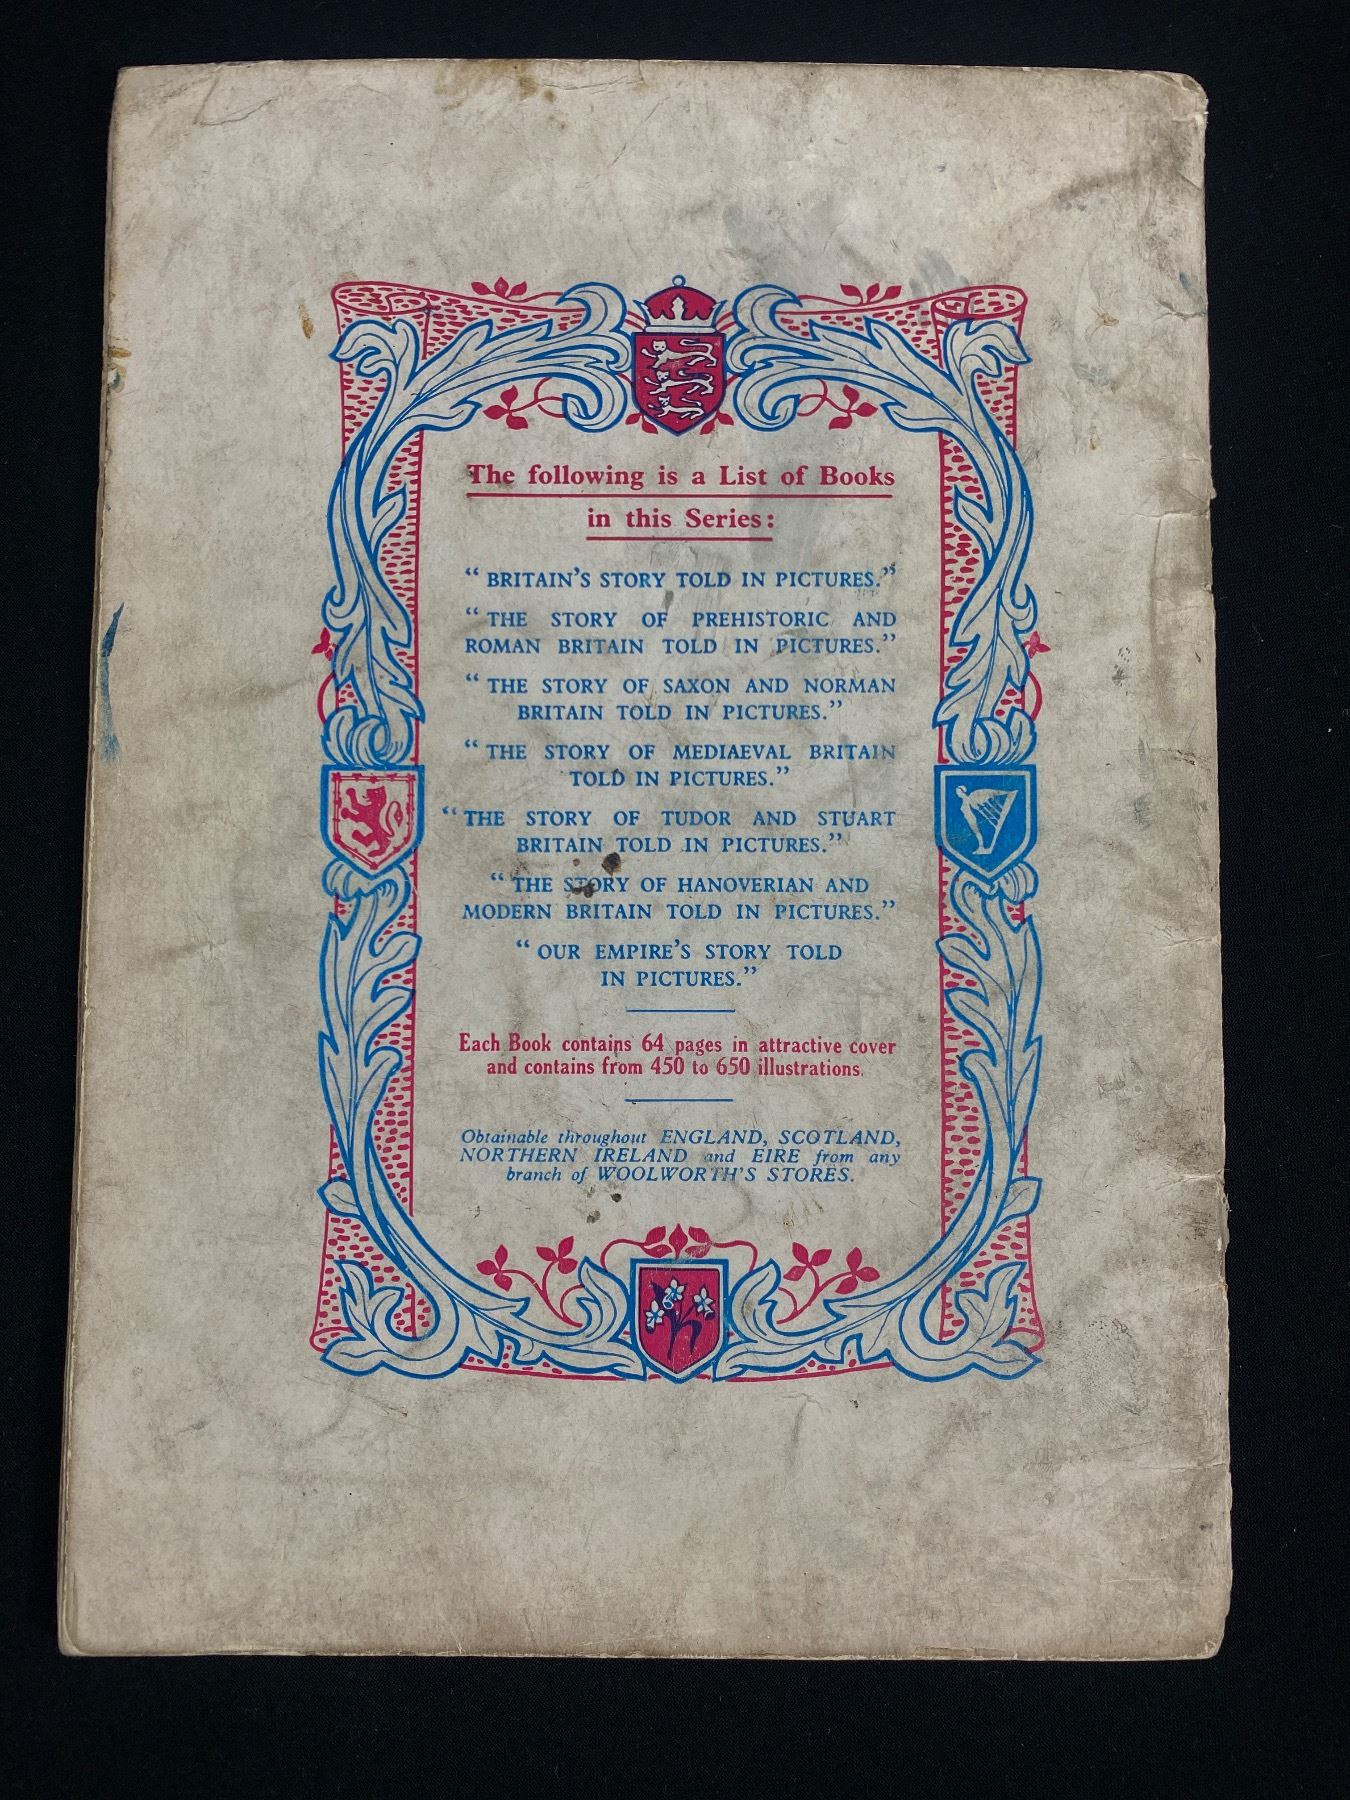 The following is a List of Books
in this Series:
“ BRITAIN’S STORY TOLD IN PICTURES.”
“ THE STORY OF PREHISTORIC AND
ROMAN BRITAIN TOLD IN PICTURES.”
“ THE STORY OF SAXON AND NORMAN
BRITAIN TOLD IN PICTURES.”
“ THE STORY OF MEDIAEVAL BRITAIN
TOLD IN PICTURES.”
“ THE STORY OF TUDOR AND STUART
BRITAIN TOLD IN PICTURES.”
“ THE STORY OF HANOVERIAN AND
MODERN BRITAIN TOLD IN PICTURES.”
“ OUR EMPIRE’S STORY TOLD
IN PICTURES.”
Each Book contains 64 pages in attractive cover
and contains from 450 to 650 illustrations.
Obtainable throughout ENGLAND, SCOTLAND,
NORTHERN IRELAND and EIRE from any
branch of WOOLWORTH’S STORES.